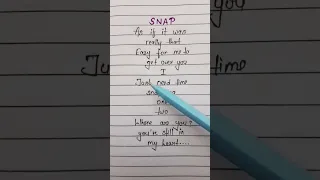 SNAP
As if it was
really that
Easy for me to
get over you
I
Just need time
one
two
Where are you?
you're still in
my heart....